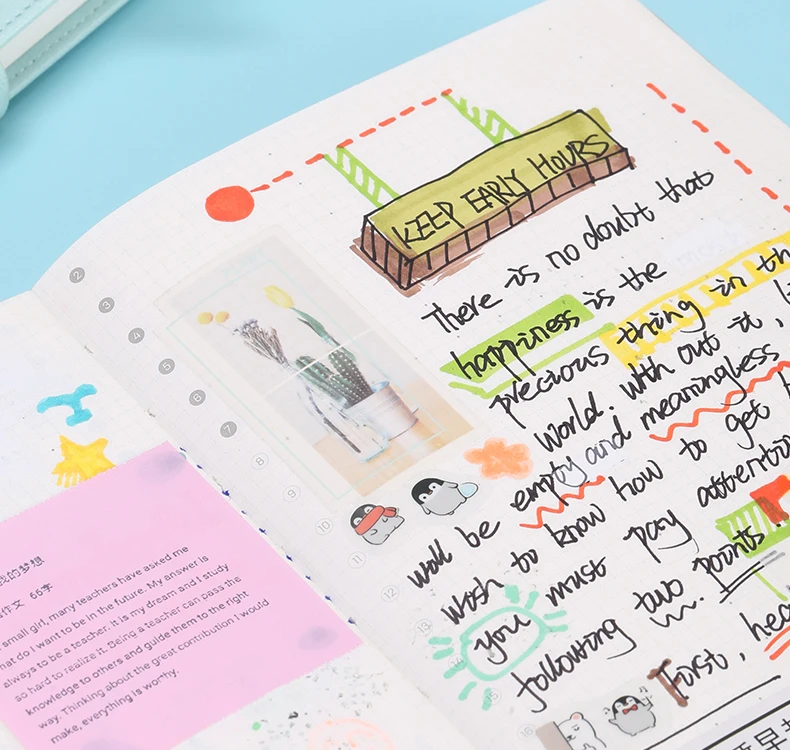 我的梦想
作文 66字
small girl, many teachers have asked me
what do I want to be in the future. My answer is
always to be a teacher. It is my dream and I study
so hard to realize it. Being a teacher can pass the
knowledge to others and guide them to the right
way. Thinking about the great contribution I would
make, everything is worthy.
2
3
4
5
6
7
8
9
10
11
12
13
15
16
KEEP EARLY HOURS
There is no doubt that
happiness is the
precious thing in th
world. with out it,
will be empty and meaningless
wish to know how to get
you must pay attentio
following two points
First, hea
早